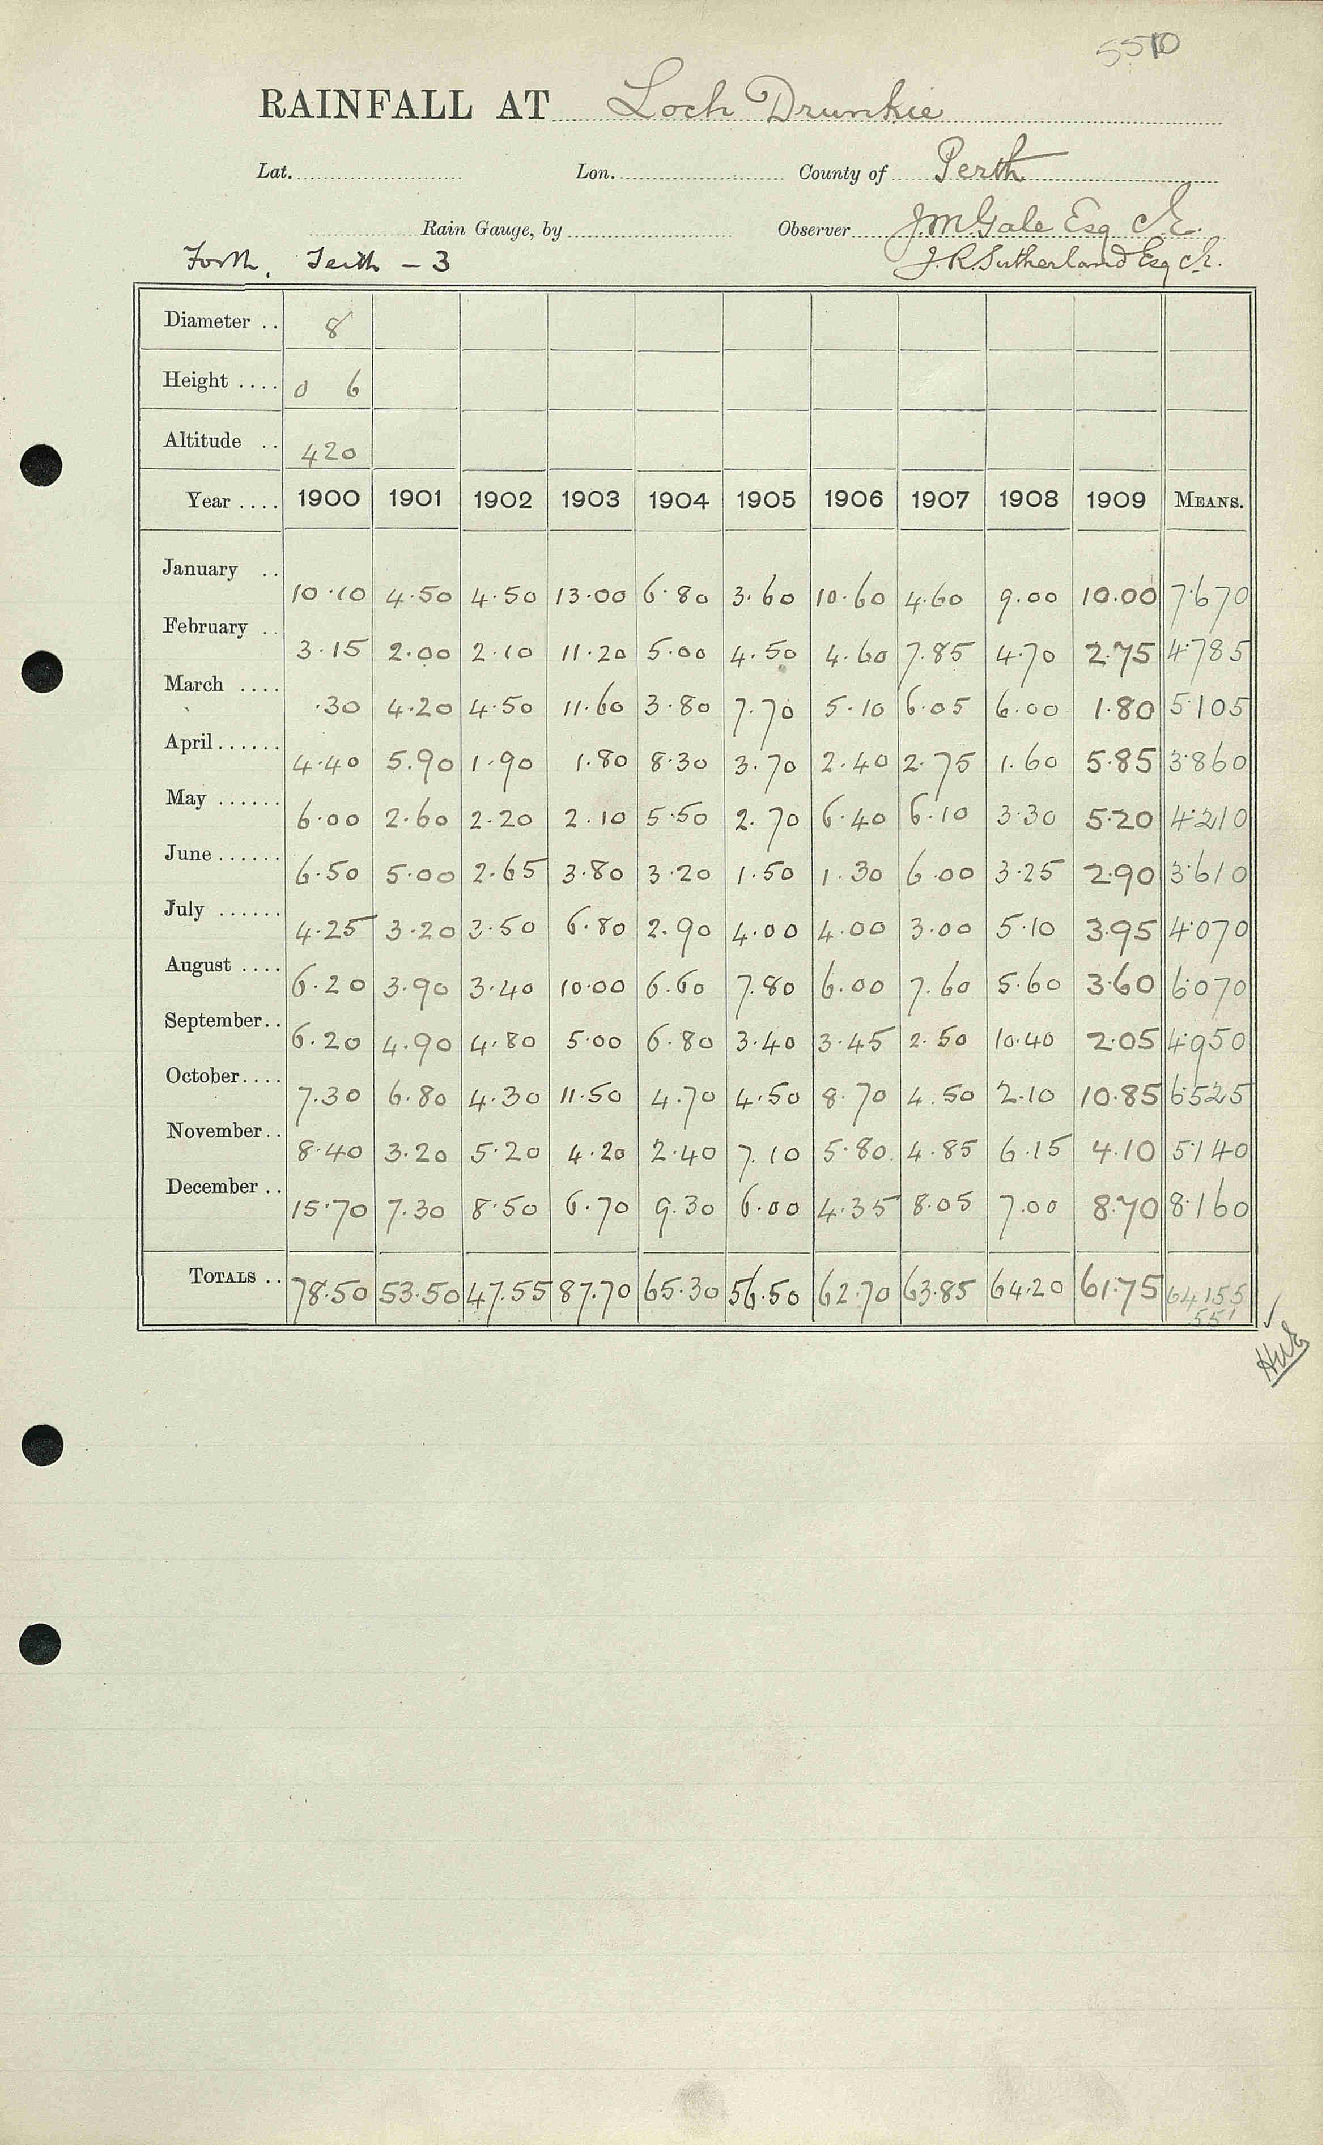 5510
RAINFALL AT Loch Drunkie
Lat. Lon. County of Perth
Rain Gauge, by Observer J.M. Gale Esq C.E.
Forth, Teith - 3 J.R. Sutherland Esq C.E.
Diameter .. 8
Height .... 0 6
Altitude .. 420
Year .... 1900 1901 1902 1903 1904 1905 1906 1907 1908 1909 MEANS.
January .. 10.10 4.50 4.50 13.00 6.80 3.60 10.60 4.60 9.00 10.00 7.670
February .. 3.15 2.00 2.10 11.20 5.00 4.50 4.60 7.85 4.70 2.75 4.785
March .... .30 4.20 4.50 11.60 3.80 7.70 5.10 6.05 6.00 1.80 5.105
April...... 4.40 5.90 1.90 1.80 8.30 3.70 2.40 2.75 1.60 5.85 3.860
May ...... 6.00 2.60 2.20 2.10 5.50 2.70 6.40 6.10 3.30 5.20 4.210
June...... 6.50 5.00 2.65 3.80 3.20 1.50 1.30 6.00 3.25 2.90 3.610
July ...... 4.25 3.20 3.50 6.80 2.90 4.00 4.00 3.00 5.10 3.95 4.070
August .... 6.20 3.90 3.40 10.00 6.60 7.80 6.00 7.60 5.60 3.60 6.070
September.. 6.20 4.90 4.80 5.00 6.80 3.40 3.45 2.50 10.40 2.05 4.950
October.... 7.30 6.80 4.30 11.50 4.70 4.50 8.70 4.50 2.10 10.85 6.525
November.. 8.40 3.20 5.20 4.20 2.40 7.10 5.80 4.85 6.15 4.10 5.140
December .. 15.70 7.30 8.50 6.70 9.30 6.00 4.35 8.05 7.00 8.70 8.160
TOTALS .. 78.50 53.50 47.55 87.70 65.30 56.50 62.70 63.85 64.20 61.75 64.155
551